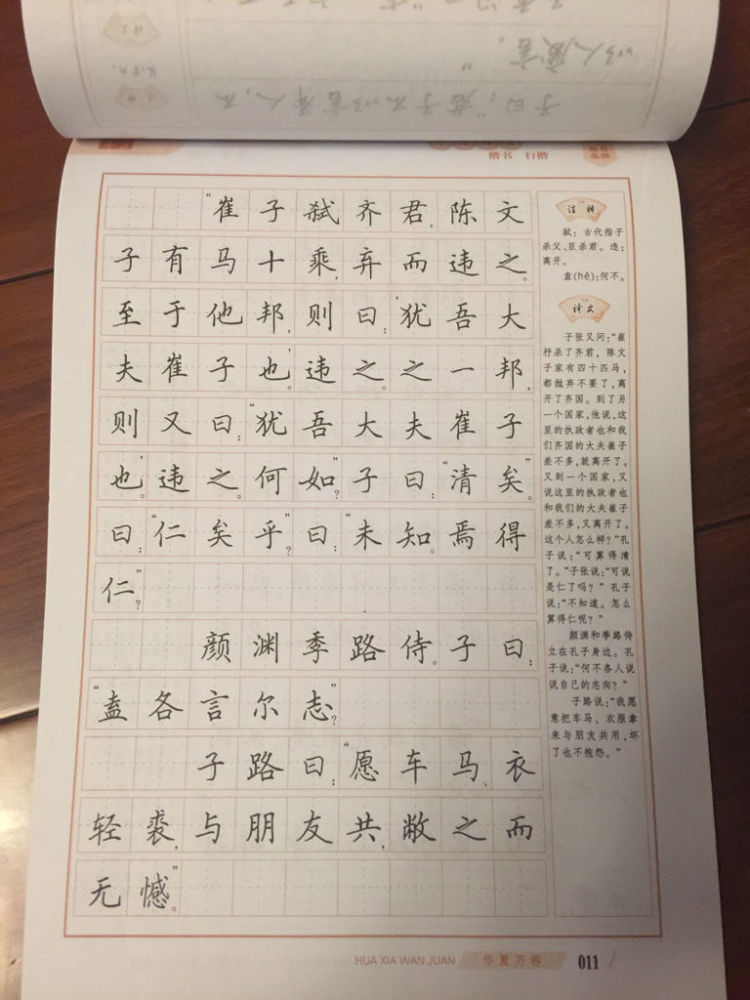 子曰："君子不以言举人，不
以人废言。"
楷书 行楷
"崔子弑齐君，陈文
子有马十乘，弃而违之。
至于他邦，则曰：'犹吾大
夫崔子也。'违之。之一邦，
则又曰：'犹吾大夫崔子
也。'违之。何如？"子曰："清矣。"
曰："仁矣乎？"曰："未知。焉得
仁？"
颜渊季路侍。子曰：
"盍各言尔志？"
子路曰："愿车马、衣
轻裘，与朋友共，敝之而
无憾。"
注释
弑：古代指子
杀父、臣杀君。违：
离开。
盍(hé)：何不。
译文
子张又问："崔
杼杀了齐君，陈文
子家有四十匹马，
都抛弃不要了，离
开了齐国。到了另
一个国家，他说，这
里的执政者也和我
们齐国的大夫崔子
差不多，就离开了。
又到一个国家，又
说这里的执政者也
和我们的大夫崔子
差不多，又离开了。
这个人怎么样？"孔
子说："可算得清
了。"子张说："可说
是仁了吗？"孔子
说："不知道。怎么
算得仁呢？"
颜渊和季路侍
立在孔子身边。孔
子说："何不各人说
说自己的志向？"
子路说："我愿
意把车马、衣服拿
来与朋友共用，坏
了也不抱怨。"
HUA XIA WAN JUAN 华夏万卷 011